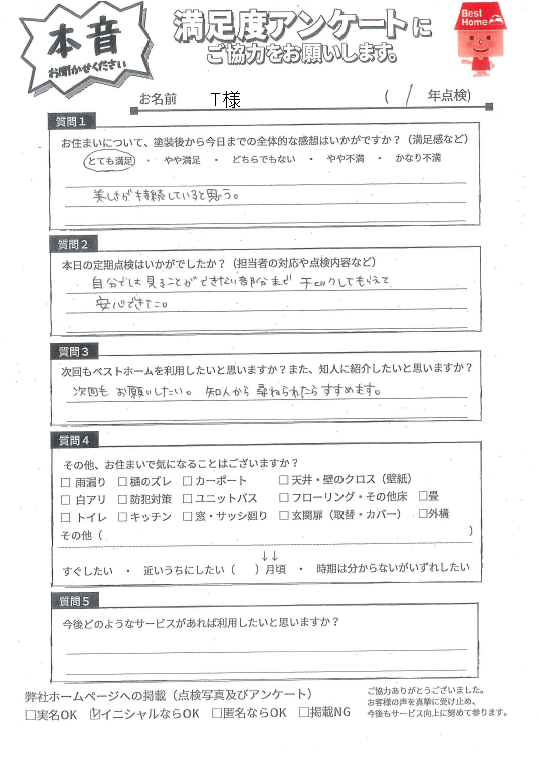 本音
お聞かせください
満足度アンケートに
ご協力をお願いします。
Best Home
お名前 T様 ( / 年点検)
質問1
お住まいについて、塗装後から今日までの全体的な感想はいかがですか？（満足感など）
とても満足 ・ やや満足 ・ どちらでもない ・ やや不満 ・ かなり不満
美しさが持続していると思う。
質問2
本日の定期点検はいかがでしたか？（担当者の対応や点検内容など）
自分では見ることができない部分まで チェックしてもらえて
安心できた。
質問3
次回もベストホームを利用したいと思いますか？また、知人に紹介したいと思いますか？
次回も お願いしたい。 知人から 尋ねられたら すすめます。
質問4
その他、お住まいで気になることはございますか？
□ 雨漏り □ 樋のズレ □ カーポート □ 天井・壁のクロス（壁紙）
□ 白アリ □ 防犯対策 □ ユニットバス □ フローリング・その他床 □畳
□ トイレ □ キッチン □ 窓・サッシ廻り □ 玄関扉（取替・カバー） □外構
その他（ ）
↓↓
すぐしたい ・ 近いうちにしたい（ ）月頃 ・ 時期は分からないがいずれしたい
質問5
今後どのようなサービスがあれば利用したいと思いますか？
弊社ホームページへの掲載（点検写真及びアンケート）
□実名OK ☑イニシャルならOK □匿名ならOK □掲載NG
ご協力ありがとうございました。
お客様の声を真摯に受け止め、
今後もサービス向上に努めて参ります。